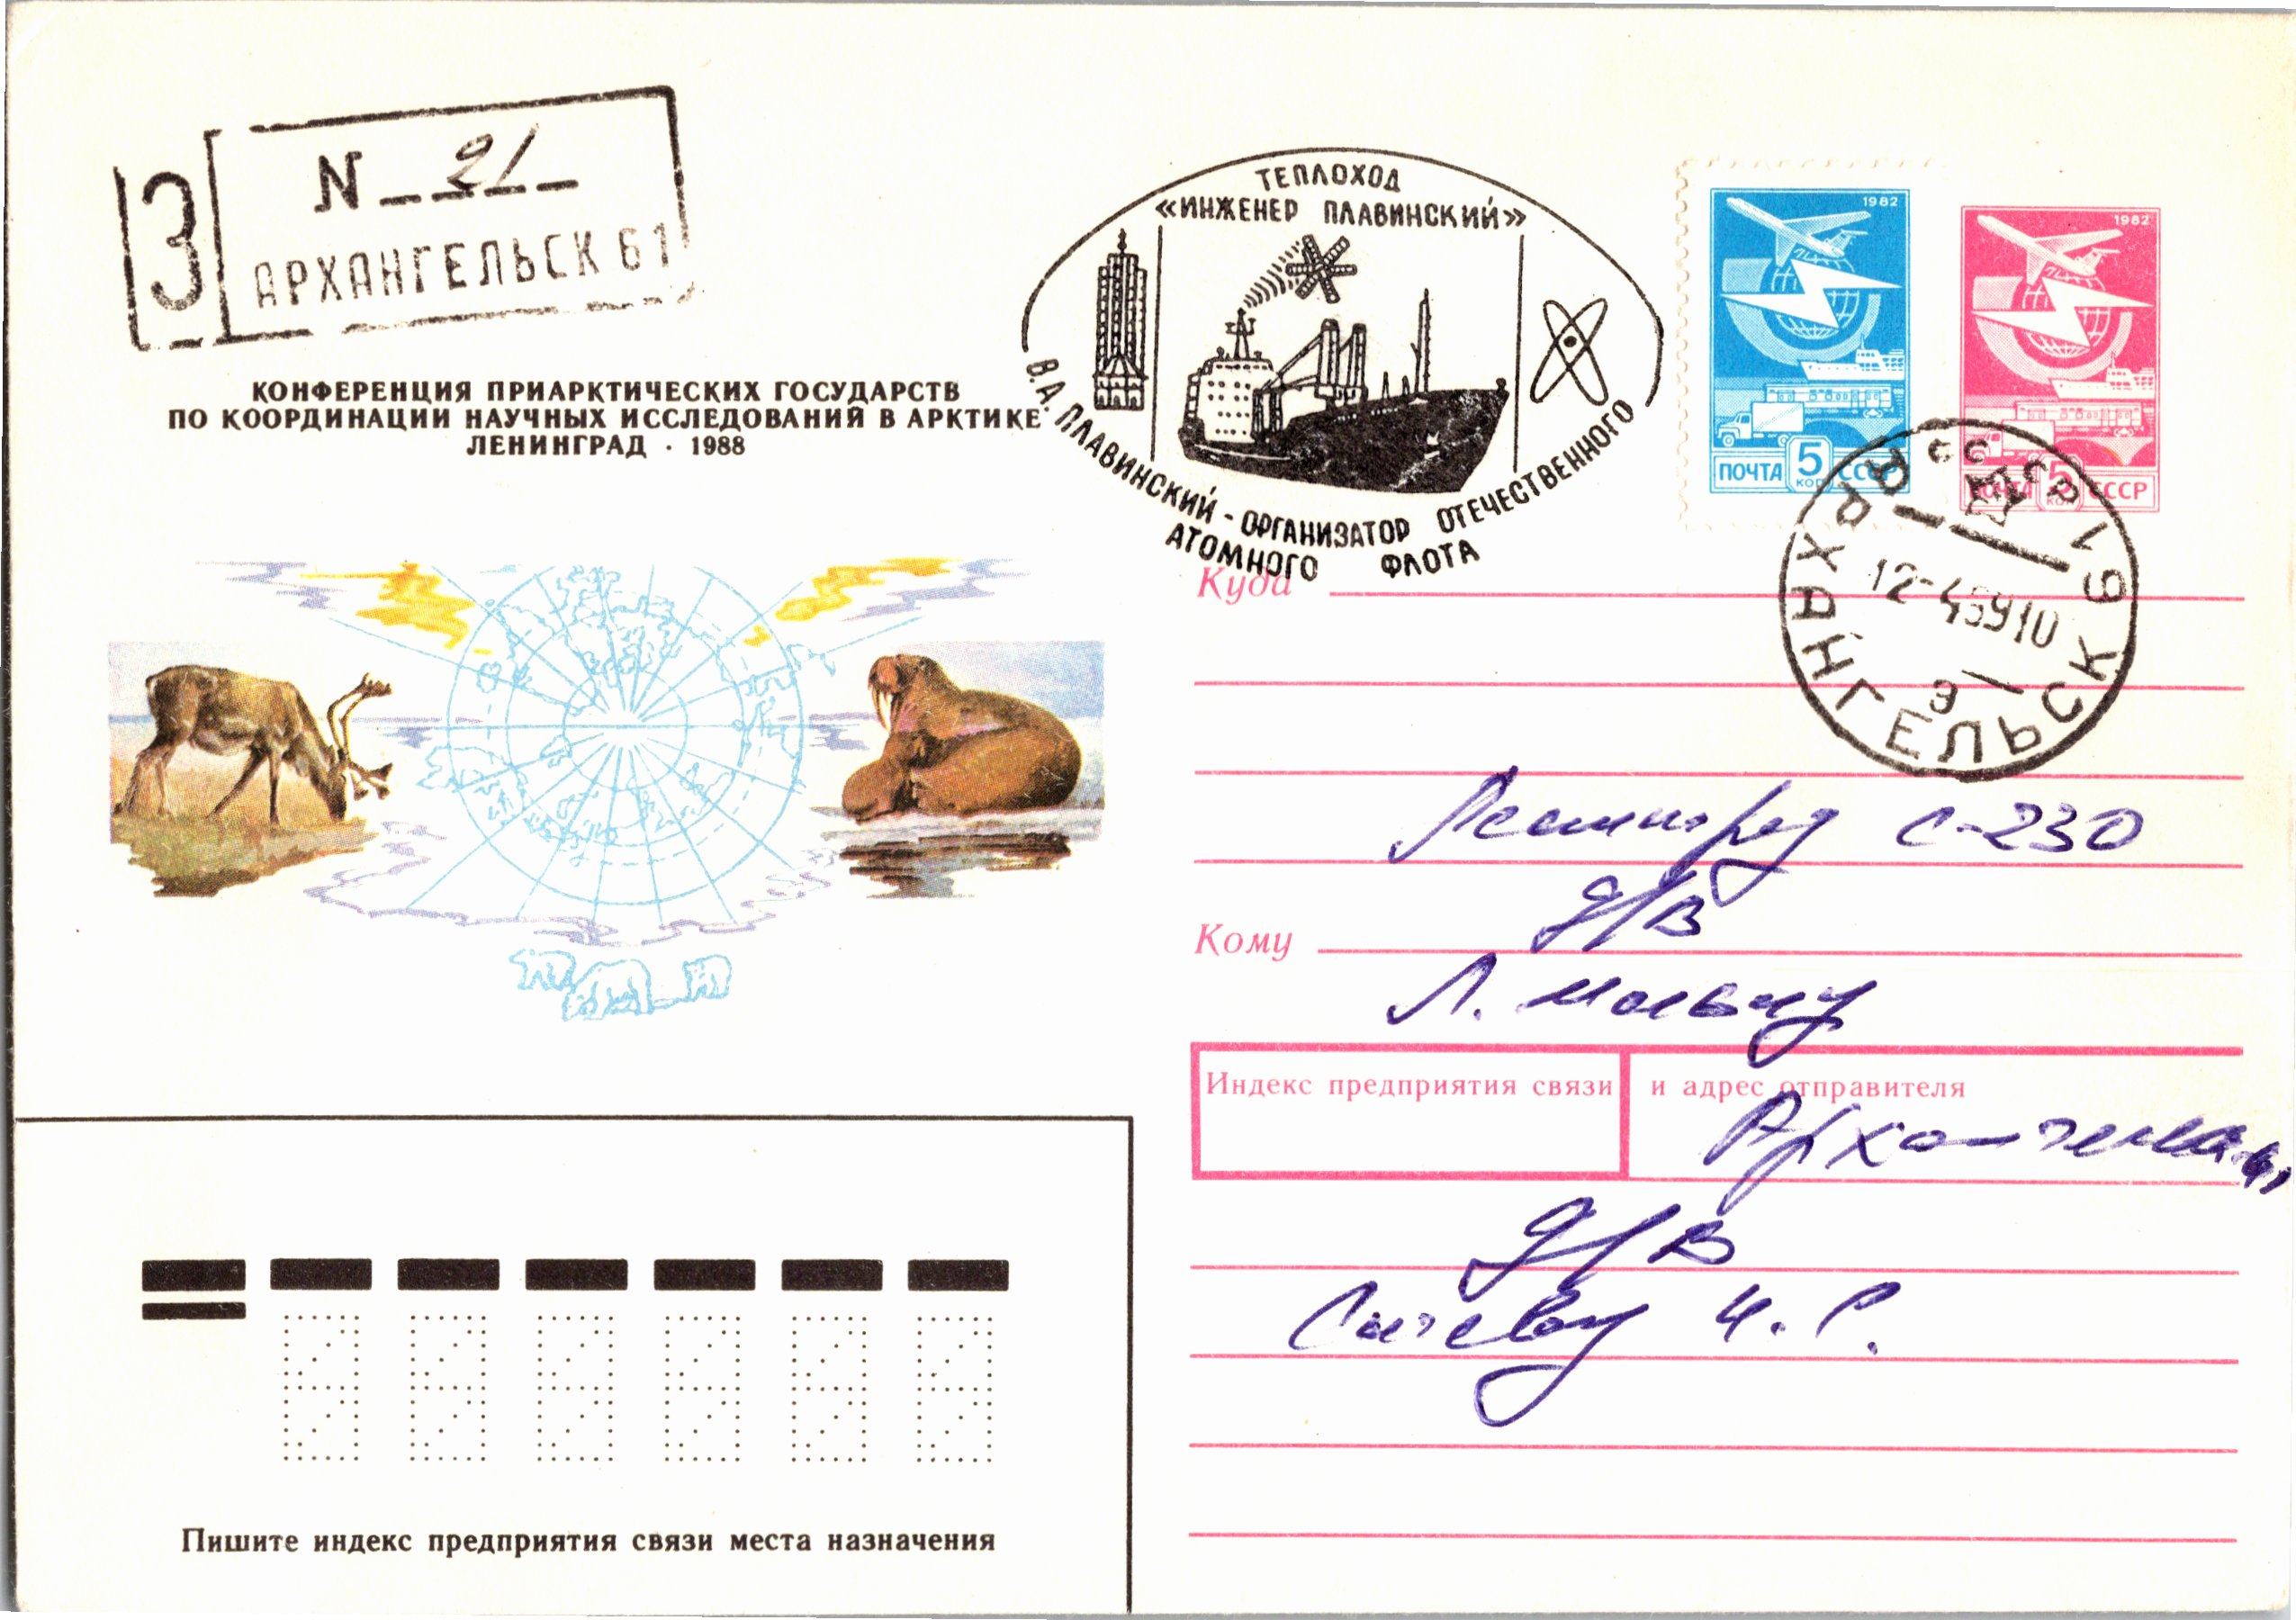 З
N 91
АРХАНГЕЛЬСК 61
КОНФЕРЕНЦИЯ ПРИАРКТИЧЕСКИХ ГОСУДАРСТВ
ПО КООРДИНАЦИИ НАУЧНЫХ ИССЛЕДОВАНИЙ В АРКТИКЕ
ЛЕНИНГРАД · 1988
ТЕПЛОХОД
«ИНЖЕНЕР ПЛАВИНСКИЙ»
В.А. ПЛАВИНСКИЙ - ОРГАНИЗАТОР ОТЕЧЕСТВЕННОГО
АТОМНОГО ФЛОТА
1982
ПОЧТА 5 КОП СССР
1982
ПОЧТА 5 КОП СССР
СССР
АРХАНГЕЛЬСК 61
Куда
Ленинград С-230
Д/В
Кому
Л.
Индекс предприятия связи
и адрес отправителя
Д/В
Пишите индекс предприятия связи места назначения